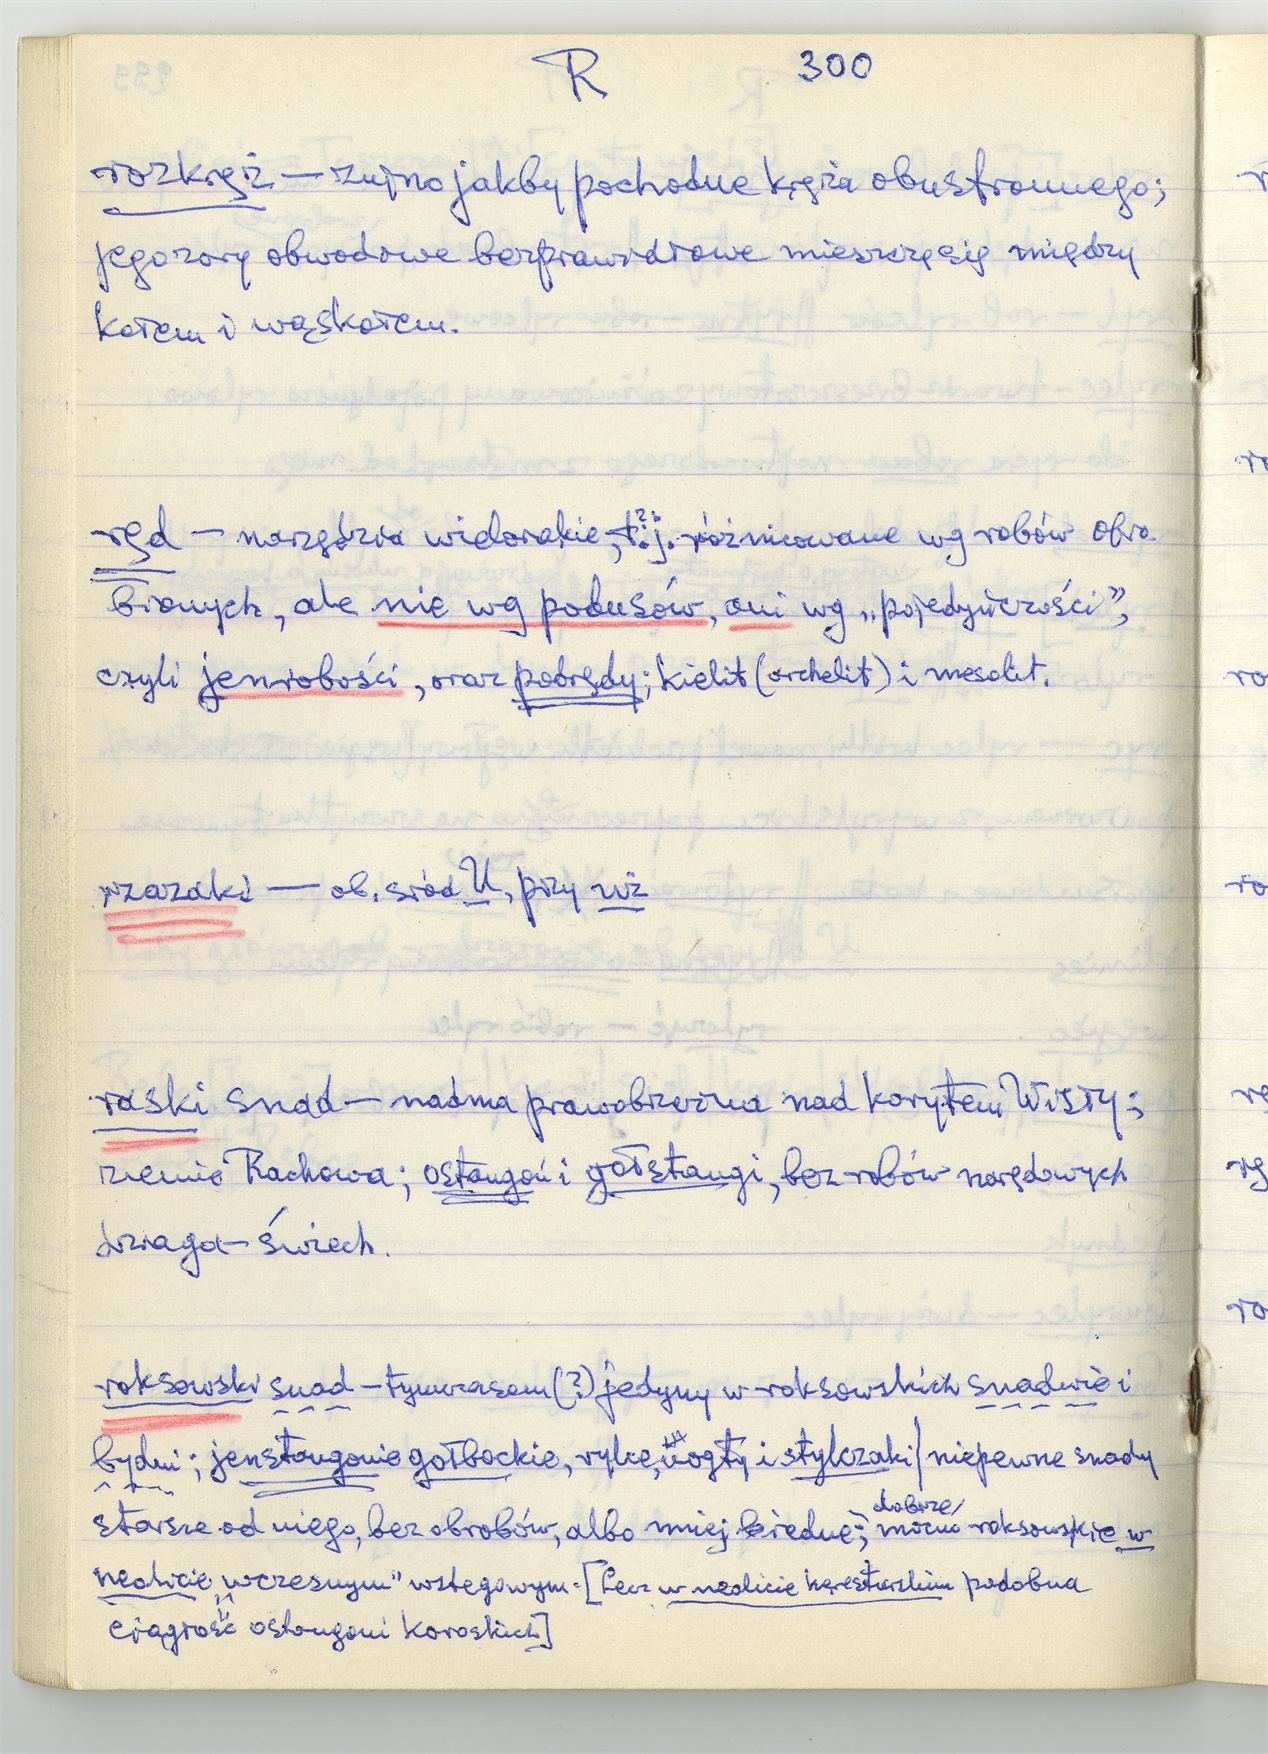 R 300
rozkręż — zujno jakby pochodne kręża obustronnego;
jego zory obwodowe bezprawdziowe mieszczę się między
kołem i wąskołem.
ręd — narzędzia widorakie, t.j. różnicowane wg robów obro-
bionych, ale nie wg podusów, ani wg „pojedyńczości”,
czyli jenrobości, oraz podrędy; kielit (archelit) i mesolit.
rzazaki — ob. sród U, przy uż
raski snad — nadma prawobrzeżna nad korytem Wisły;
ziemia Rachowa; ostangoń i gołstangi, bez robów narędowych
dziaga- świech.
roksowski snad — tymczasem (?) jedyny w roksowskich snadwie i
bydni; jenstangonie gołbockie, rylce, wogty i stylczaki / niepewne snady
starsze od niego, bez obrobów, albo mniej biedne; dobrze/mocno roksowskie w
neolicie „wczesnym” wstęgowym. [Lecz w neolicie keresturskim podobna
ciągłość ostangoni koroskich]